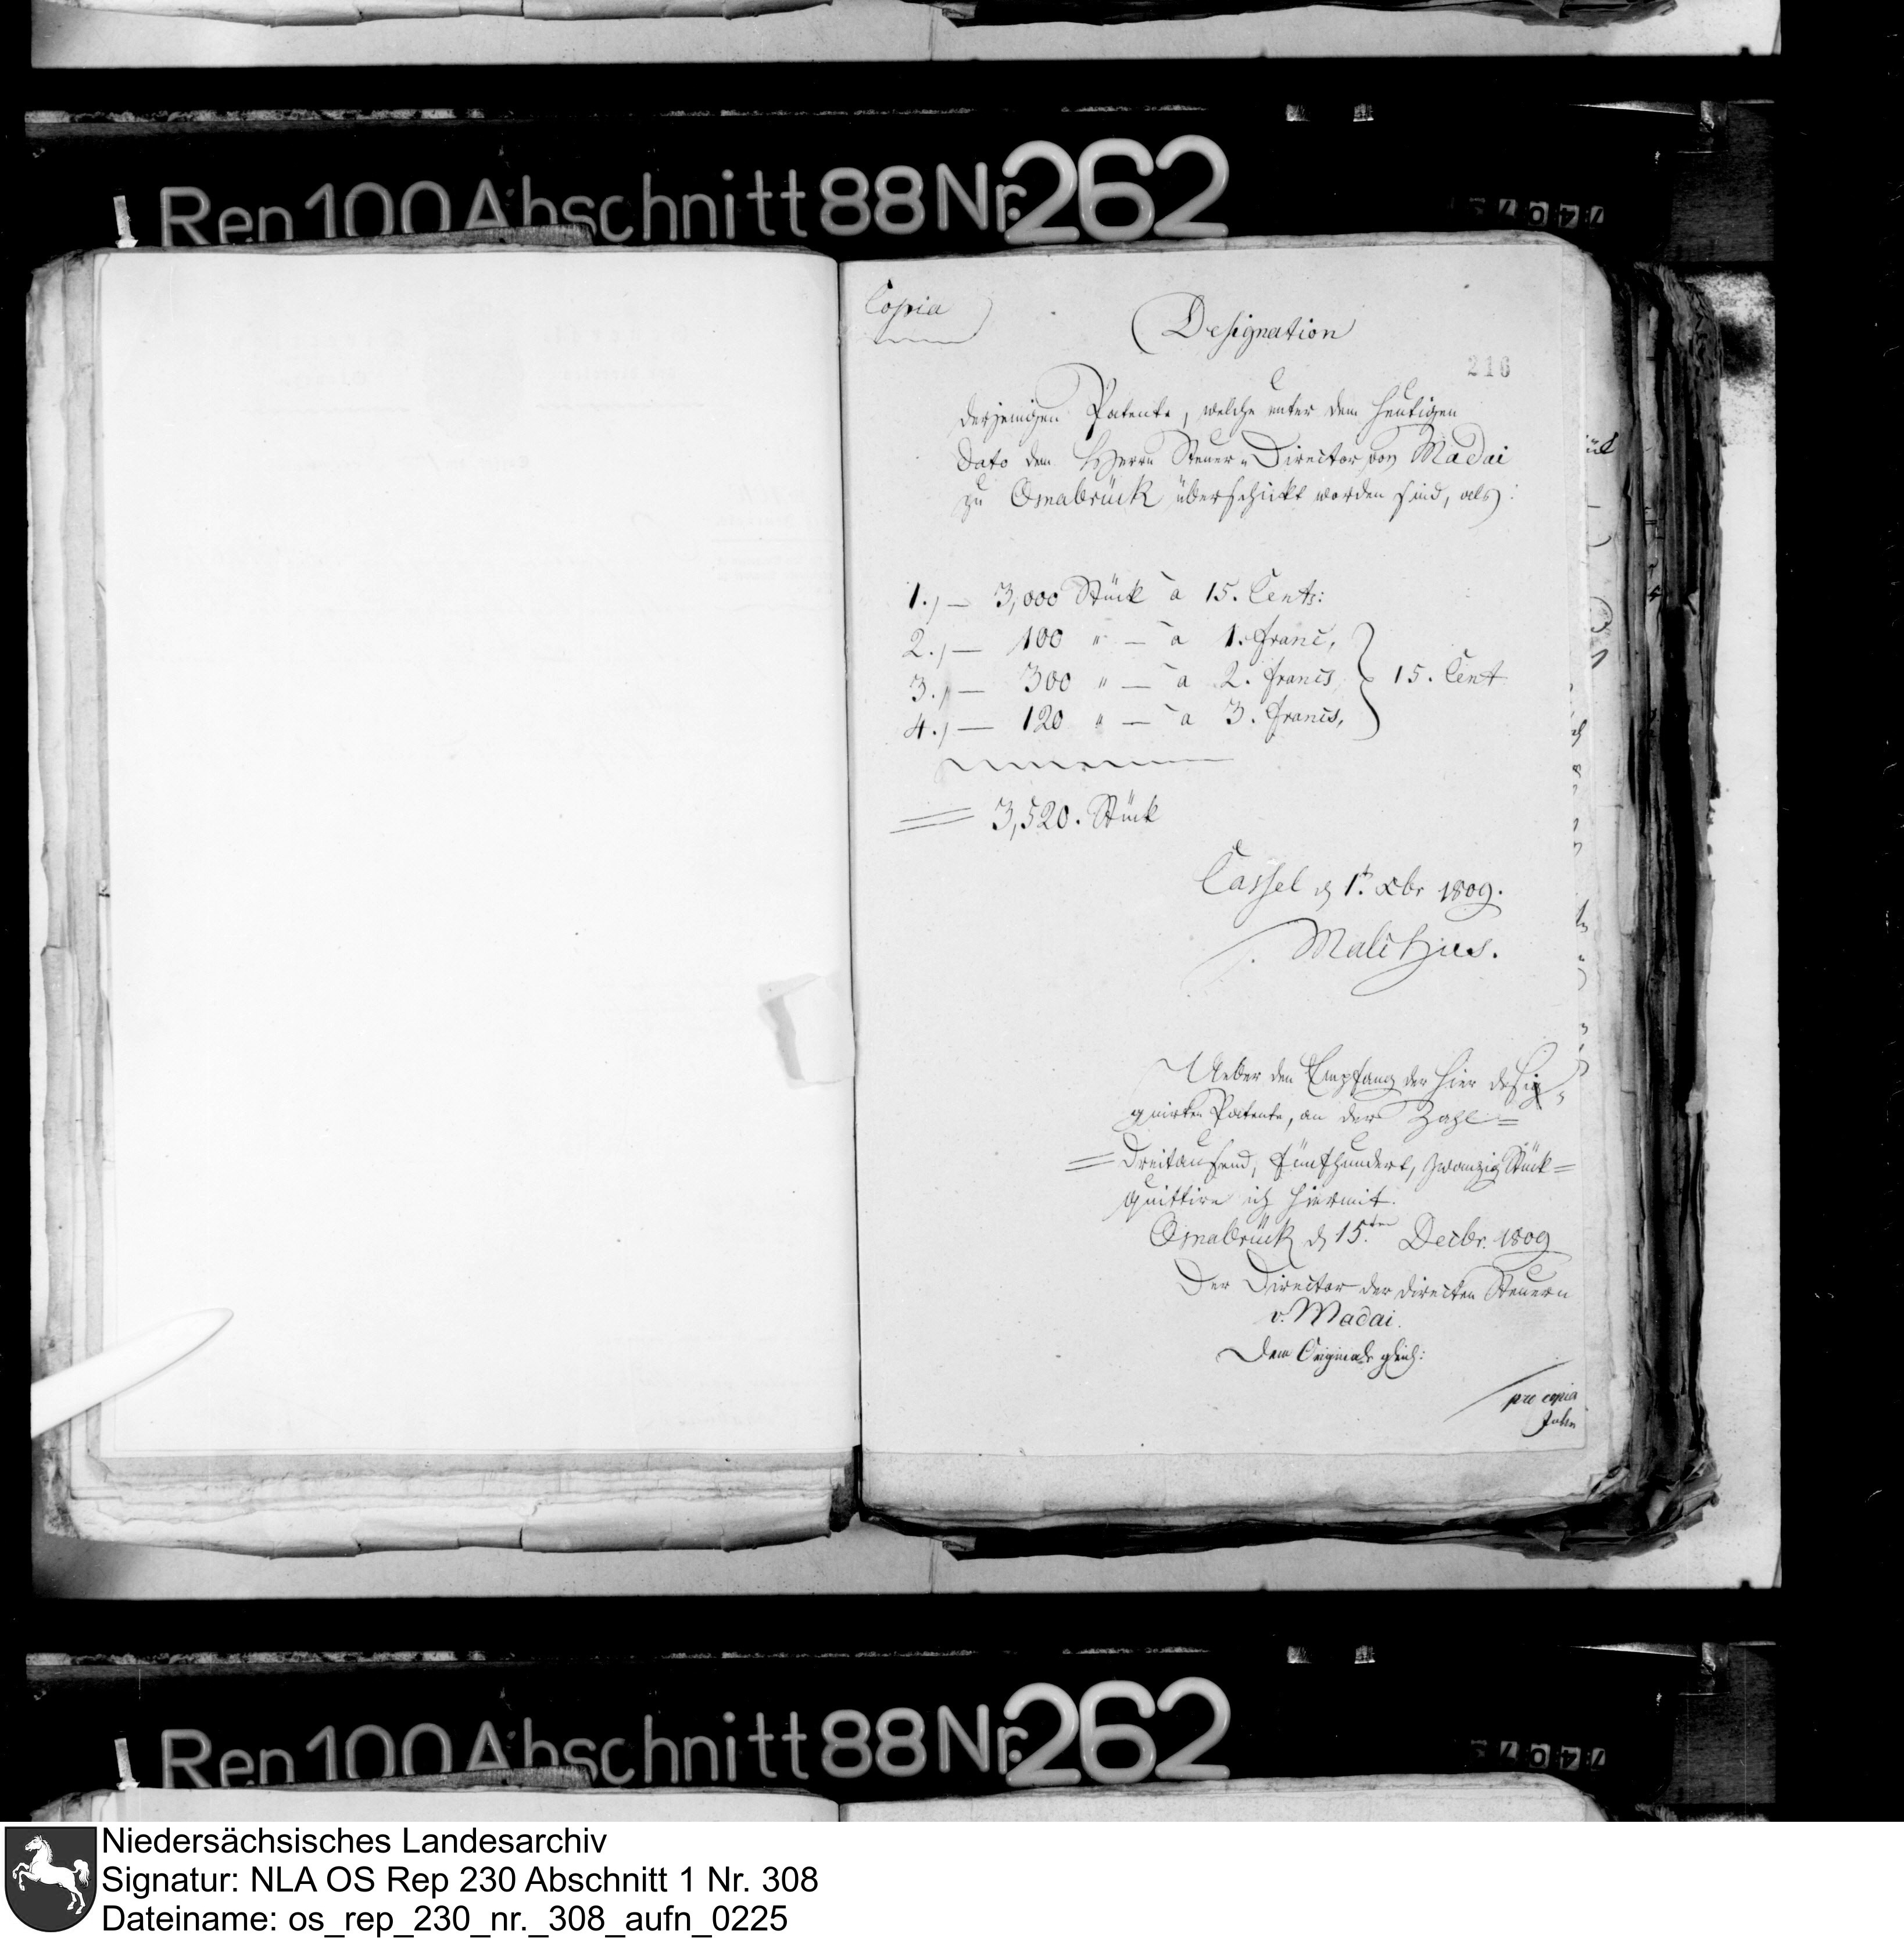 Rep 100 Abschnitt 88 Nr. 262
Copia
Designation
210
derjenigen Patente, welche unter dem heutigen
Dato dem Herrn Steuer-Director von Madai
zu Osnabrück überschickt worden sind, als:
1.) — 3,000 Stück à 15. Cents:
2.) — 100 " — à 1. Franc,
3.) — 300 " — à 2. Francs } 15. Cent
4.) — 120 " — à 3. Francs,
3,520. Stück
Cassel d 1t. Xbr 1809.
Malchus.
Ueber den Empfang der hier desig-
nirten Patente, an der Zahl =
= Dreitausend, fünfhundert, zwanzig Stück =
quittire ich hiermit.
Osnabrück d 15ten Decbr. 1809
Der Director der directen Steuern
v. Madai.
Dem Originale gleich:
pro copia
Rep 100 Abschnitt 88 Nr. 262
Niedersächsisches Landesarchiv
Signatur: NLA OS Rep 230 Abschnitt 1 Nr. 308
Dateiname: os_rep_230_nr._308_aufn_0225